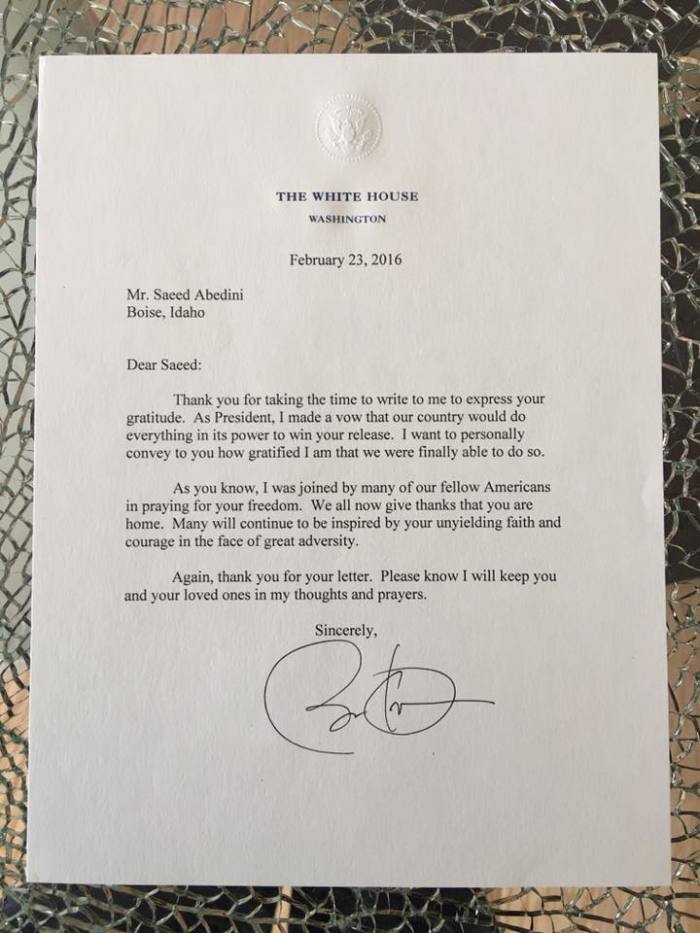 THE WHITE HOUSE
WASHINGTON
February 23, 2016
Mr. Saeed Abedini
Boise, Idaho
Dear Saeed:
Thank you for taking the time to write to me to express your
gratitude. As President, I made a vow that our country would do
everything in its power to win your release. I want to personally
convey to you how gratified I am that we were finally able to do so.
As you know, I was joined by many of our fellow Americans
in praying for your freedom. We all now give thanks that you are
home. Many will continue to be inspired by your unyielding faith and
courage in the face of great adversity.
Again, thank you for your letter. Please know I will keep you
and your loved ones in my thoughts and prayers.
Sincerely,